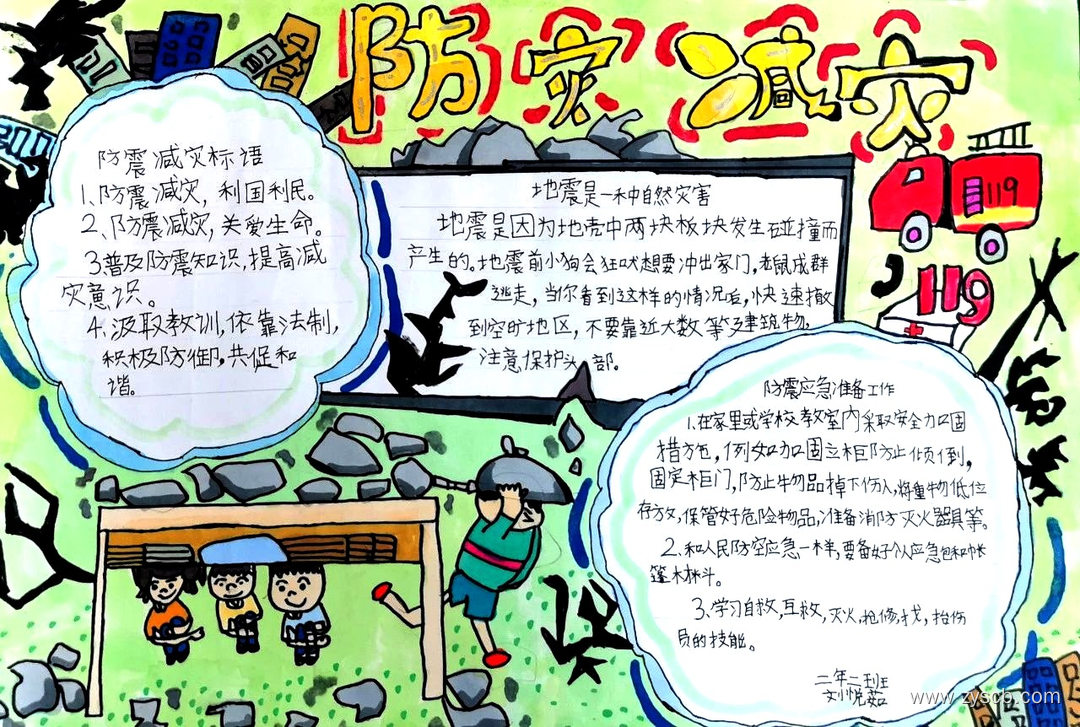 防灾减灾
防震减灾标语
1、防震减灾，利国利民。
2、防震减灾，关爱生命。
3.普及防震知识，提高减
灾意识。
4.汲取教训，依靠法制，
积极防御，共促和
谐。
地震是一种自然灾害
地震是因为地壳中两块板块发生碰撞而
产生的。地震前小狗会狂吠想要冲出家门，老鼠成群
逃走，当你看到这样的情况后，快速撤
到空旷地区，不要靠近大数等建筑物，
注意保护头部。
119
119
防震应急准备工作
1.在家里或学校教室内采取安全加固
措施，例如加固立柜防止倾倒，
固定柜门，防止物品掉下伤人，将重物低位
存放，保管好危险物品，准备消防灭火器具等。
2.和人民防空应急一样，要备好个人应急包和帐
篷
3.学习自救，互救，灭火，抢修，找，抬伤
员的技能。
二年二班
刘悦茹
www.zyscb.com